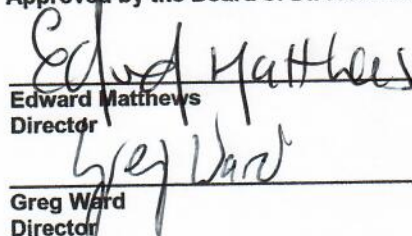 Approved by the Board of
Edward Matthews
Edward Matthews
Director
Greg Ward
Greg Ward
Director